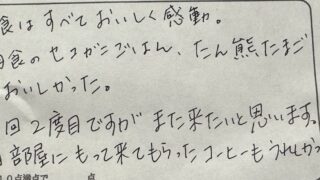 食はすべておいしく感動。
食のセコガニごはん、たん熊たまご
おいしかった。
回2度目ですが また来たいと思います。
部屋にもって来てもらったコーヒーもうれしかっ
点